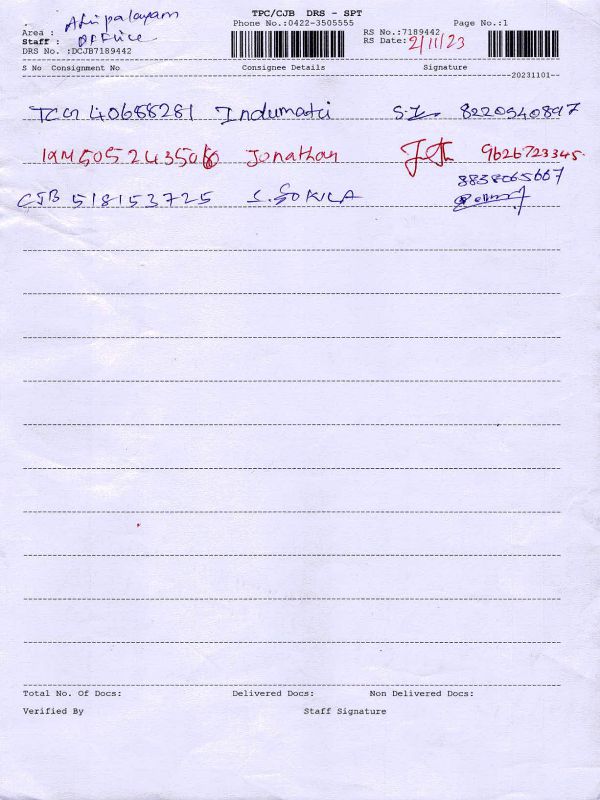 TPC/CJB DRS - SPT
Phone No.:0422-3505555
Page No.:1
Area : Athipalayam
RS No.:7189442
Staff : Office
RS Date: 2/11/23
DRS No. :DCJB7189442
S No Consignment No Consignee Details Signature
--20231101--
40688281 Indumathi 8220540897
Jonathan 9626723345.
8838065667
CJB 518153725 S. GOKILA
Total No. Of Docs: Delivered Docs: Non Delivered Docs:
Verified By Staff Signature